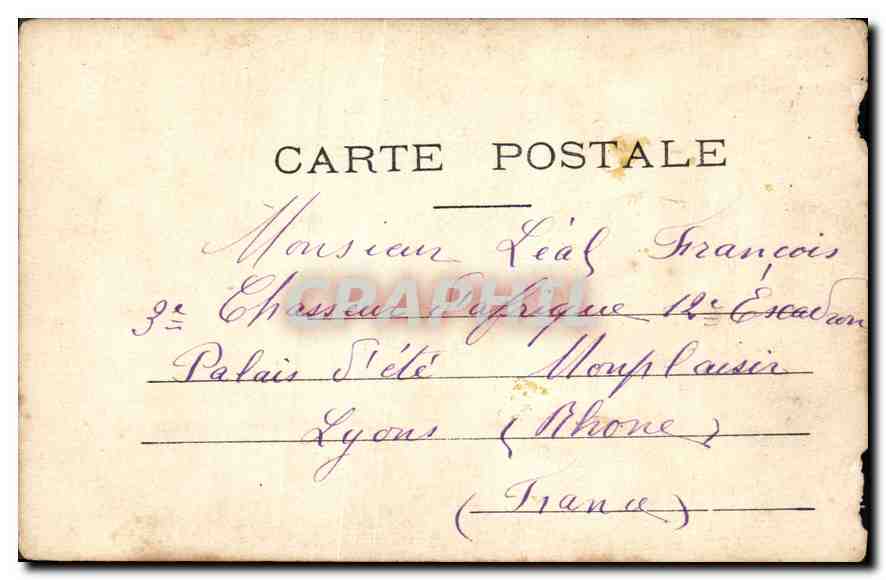 CARTE POSTALE
Monsieur Léal François
3e Chasseur d'afrique 12e Éscadron
Palais d'été Monplaisir
Lyons (Rhone)
(France)